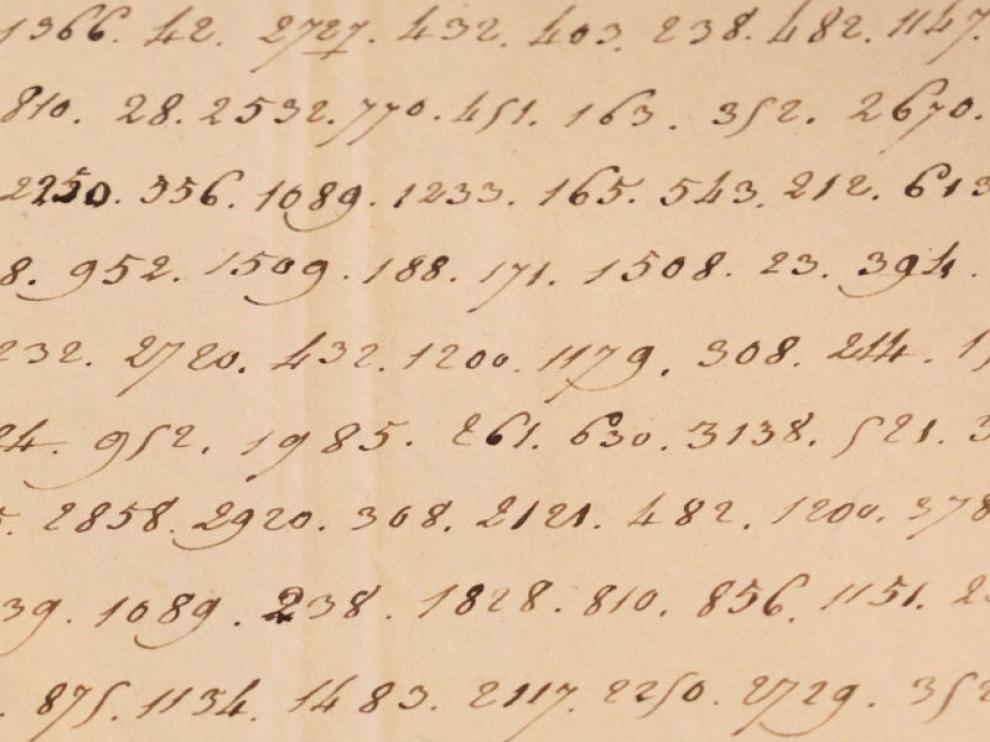 1366. 42. 2727. 432. 403. 238. 482. 1147.
810. 28. 2532. 770. 451. 163. 352. 2670.
2250. 356. 1089. 1233. 165. 543. 212. 613
8. 952. 1509. 188. 171. 1508. 23. 394.
232. 2720. 432. 1200. 1179. 308. 214.
24. 952. 1985. 261. 630. 3138. 521. 3
5. 2858. 2920. 308. 2121. 482. 1200. 378
39. 1089. 238. 1828. 810. 856. 1151. 2
. 875. 1134. 1483. 2117. 2250. 2729. 352